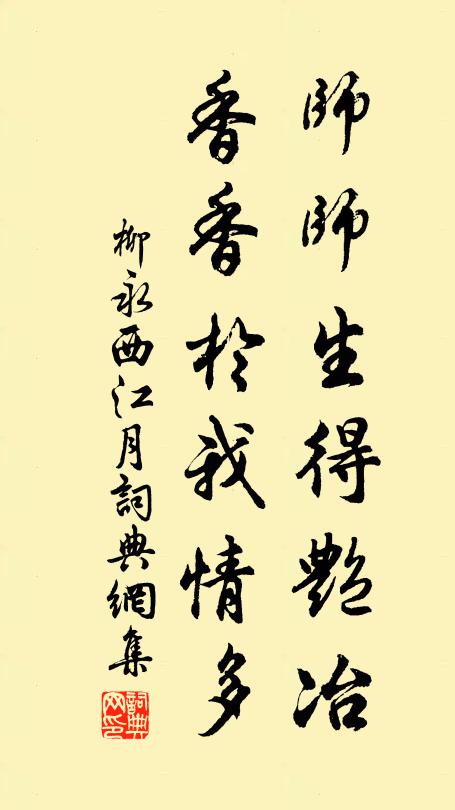 師師生得艷冶
香香於我情多
柳永西江月詞典網集
詞典网印